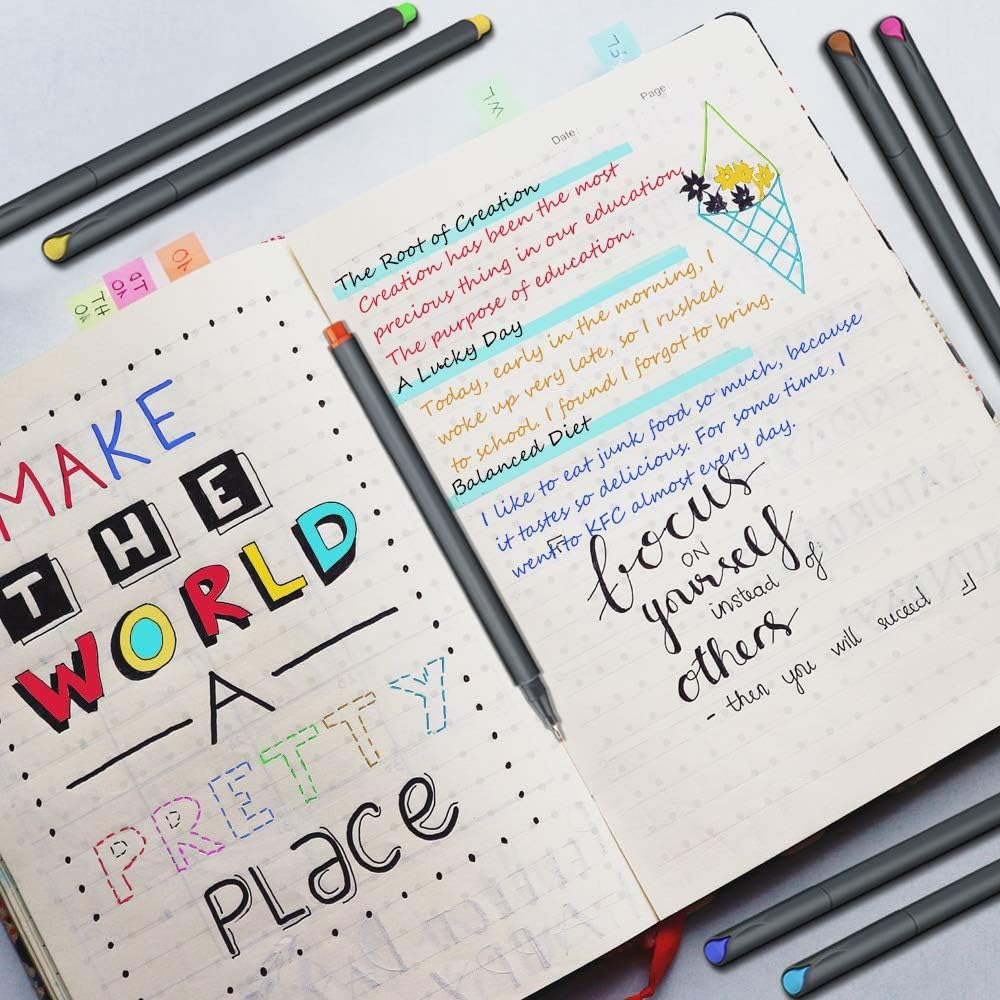 MAKE
THE
WORLD
A
PRETTY
PLace
Date:
Page
The Root of Creation
Creation has been the most
precious thing in our education.
The purpose of education.
A Lucky Day
Today, early in the morning, I
woke up very late, so I rushed
to school. I found I forgot to bring.
Balanced Diet
I like to eat junk food so much, because
it tastes so delicious. For some time, I
went to KFC almost every day.
focus
ON
yourself
instead of
others
- then you will succed